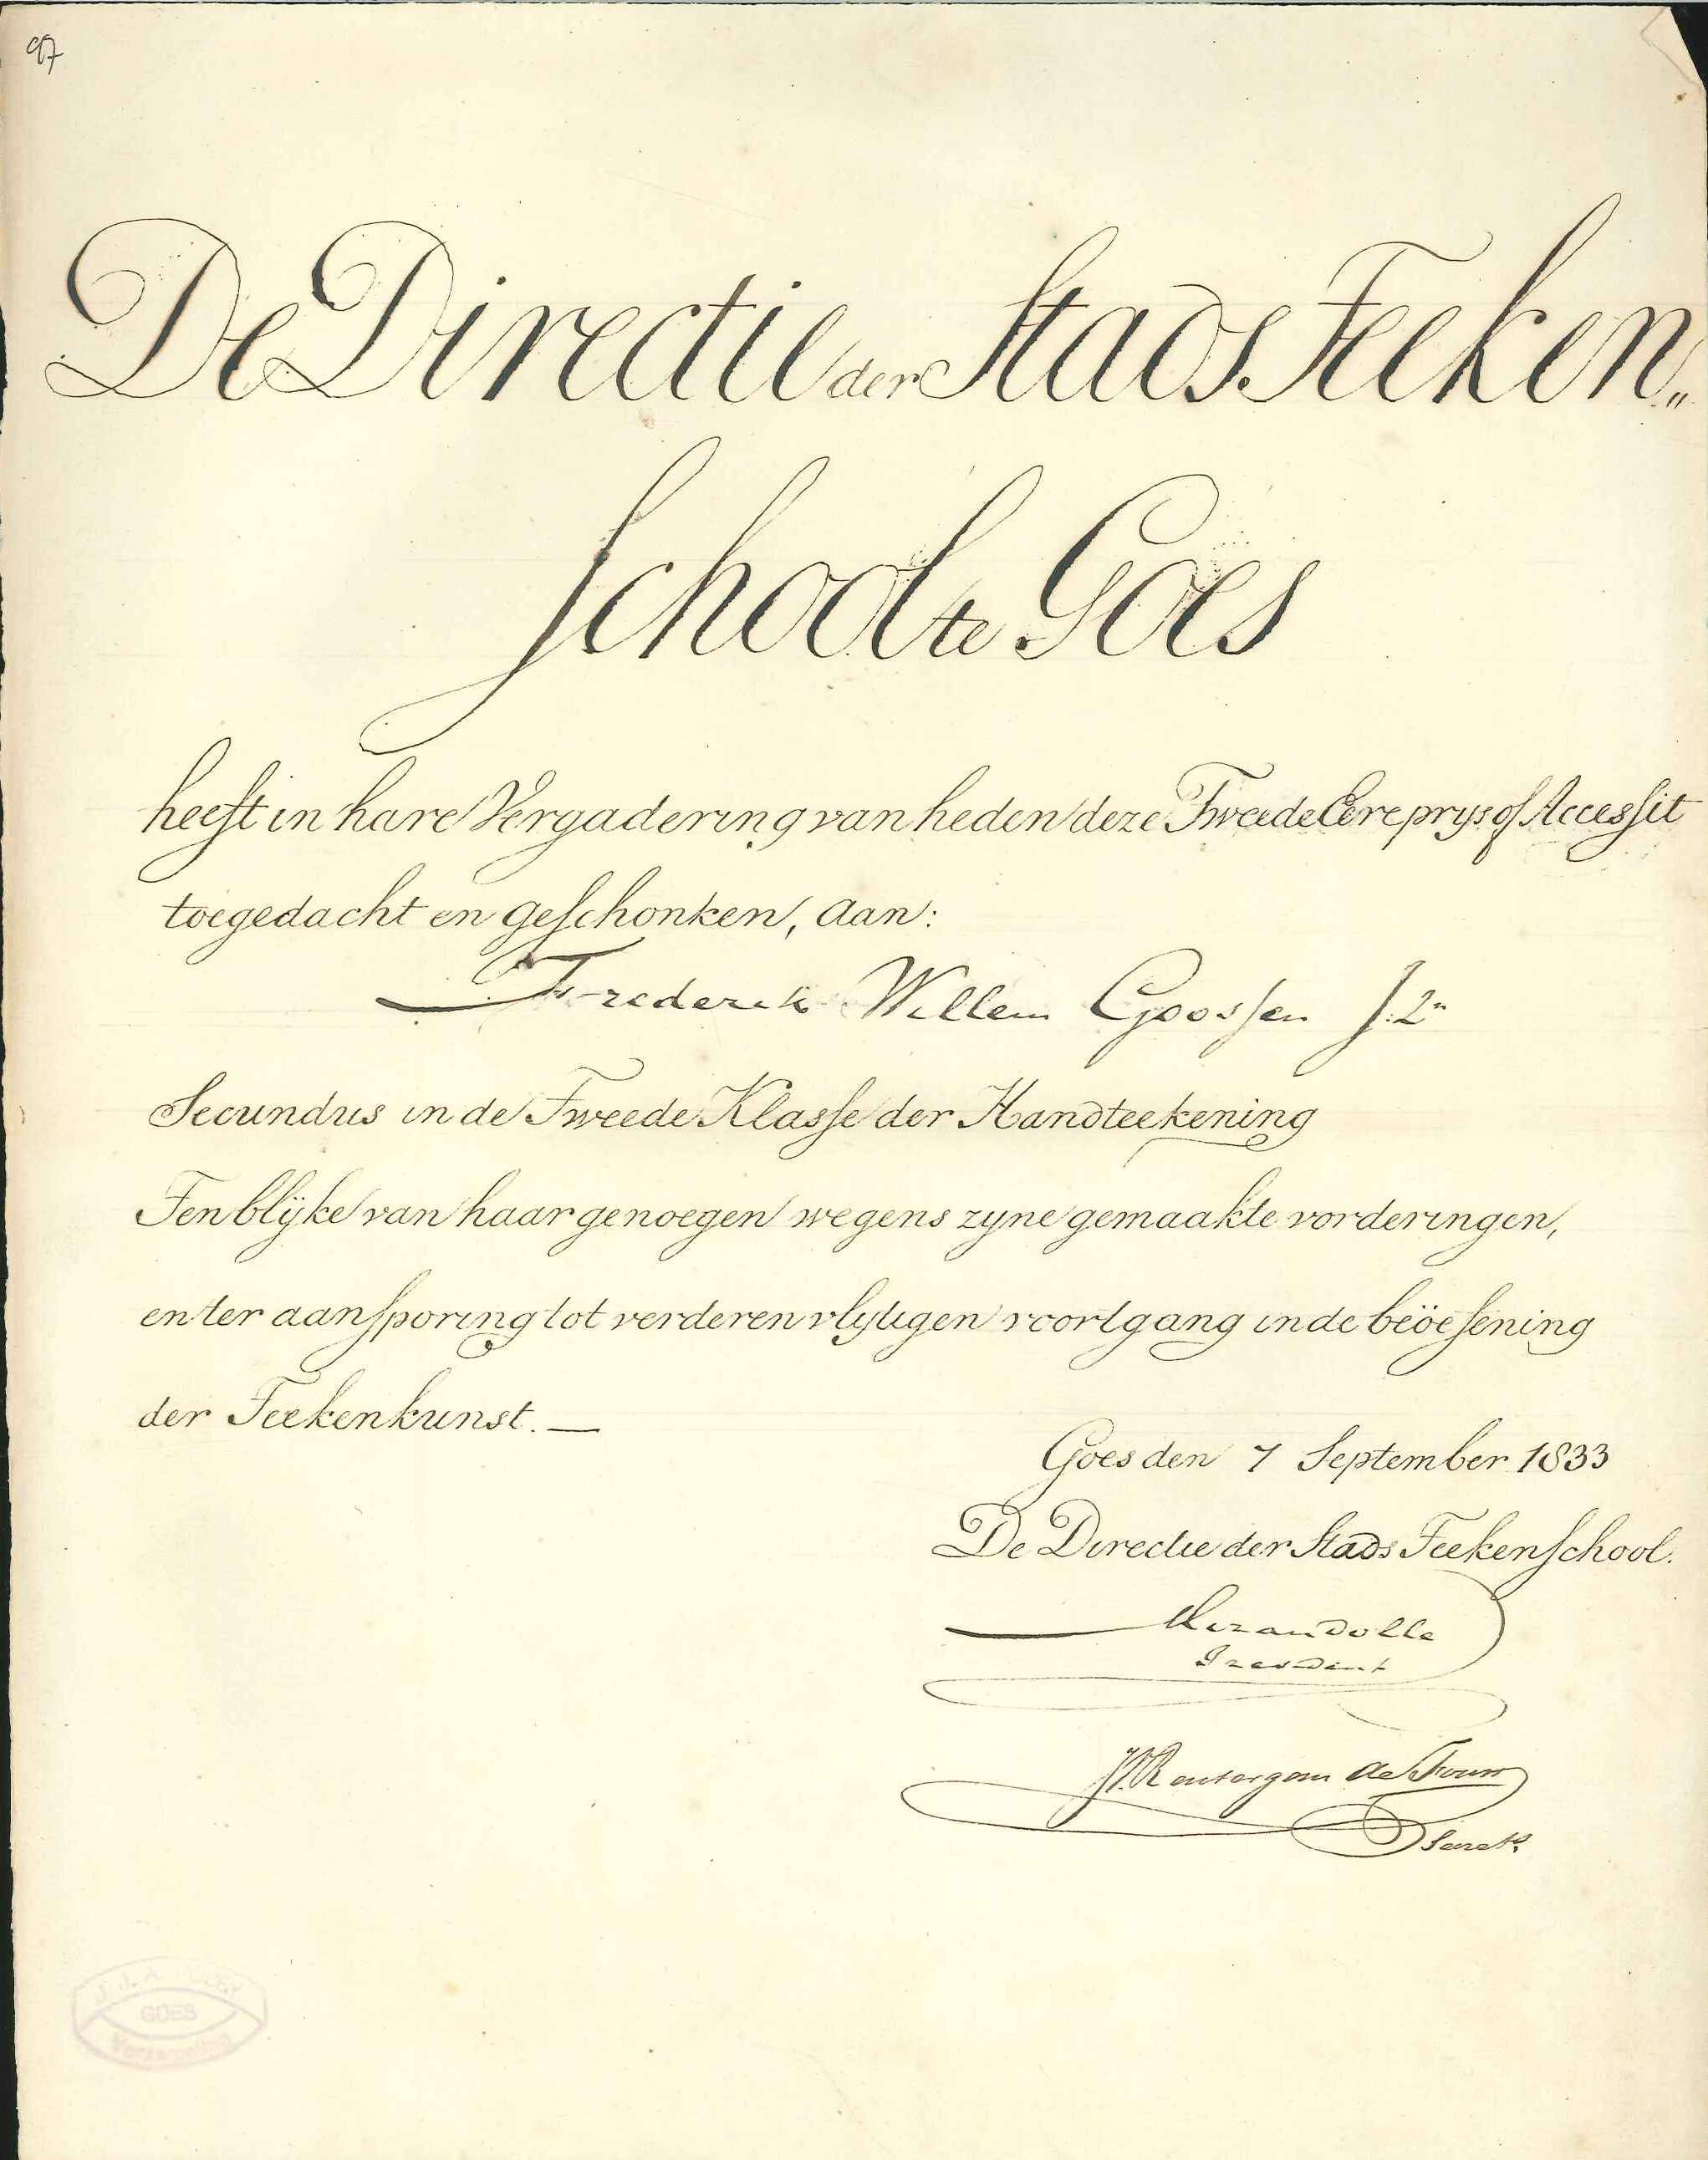 97
De Directie der Stads Teeken„
school te Goes
heeft in hare Vergadering van heden deze Tweede Eereprys of Accessit
toegedacht en geschonken, aan:
Frederik Willem Goossen J. Zn
Secundus in de Tweede Klasse der Handteekening
Ten blÿke van haar genoegen wegens zyne gemaakte vorderingen,
en ter aansporing tot verderen vlytigen voortgang in de beöefening
der Teekenkunst. —
Goes den 7 September 1833
De Directie der Stads Teekenschool.
Kerandolle
President
Rentergem
Secrets.
GOES
Verzameling